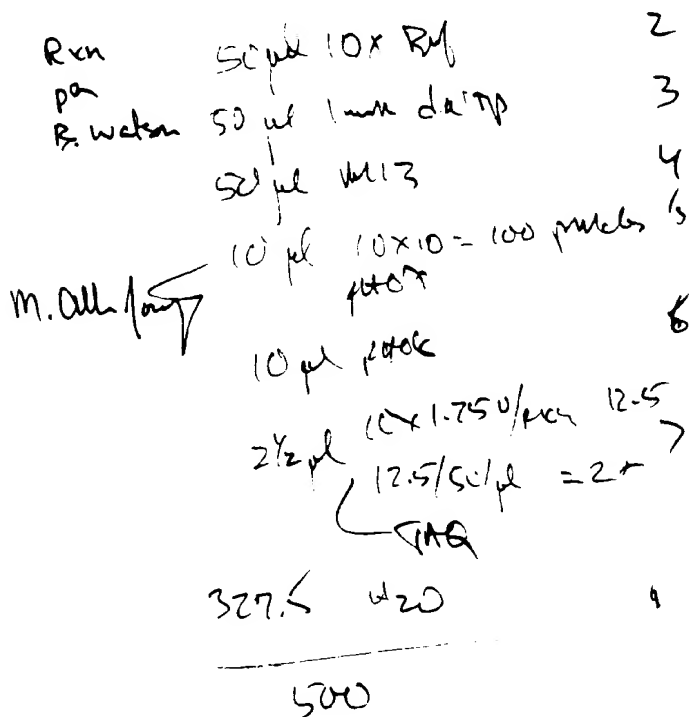 Rxn 50 µl 10x Buf 2
per
B. Watson 50 µl 1 mM dNTP 3
50 µl M13 4
10 µl 10x10 = 100 pmoles 5
M.
10 µl 6
2½ µl 10x1.25U/rxn 12.5
12.5/5U/µl = 2+ 7
TAQ
327.5 H2O 1
500